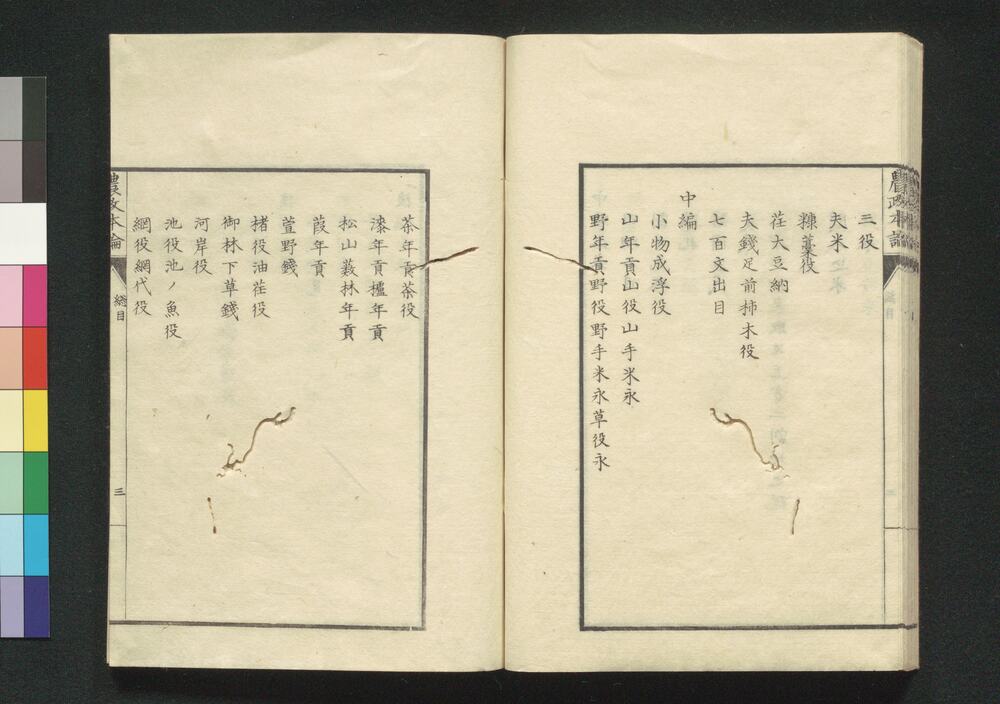 農政本論
三役
夫米
糠藁役
荏大豆納
夫錢足前柿木役
七百文出目
中編
小物成浮役
山年貢山役山手米永
野年貢野役野手米永草役永
茶年貢茶役
漆年貢櫨年貢
松山薮林年貢
葭年貢
萱野錢
楮役油荏役
御林下草錢
河岸役
池役池ノ魚役
網役網代役
農政本論
總目
三